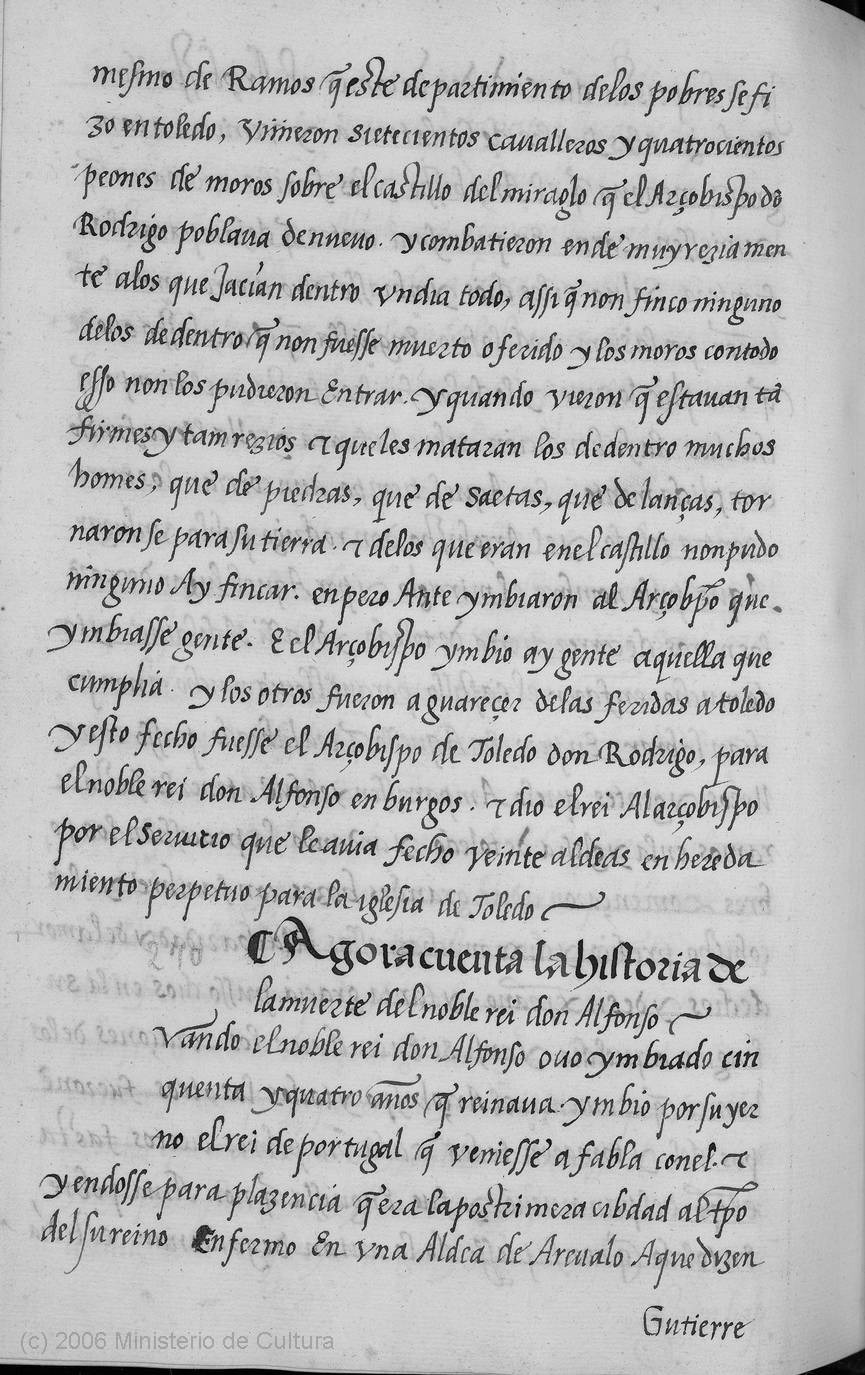 mesmo de Ramos q̃ este departimiento delos pobres se fi
zo en toledo, viñieron sietecientos cavalleros y quatrocientos
peones de moros sobre el castillo del miraglo q̃ el Arçobispo dõ
Rodrigo poblaua de nueuo. y combatieron ende muy reziamen
te alos que Jacian dentro vn dia todo, assi q̃ non finco ninguno
delos de dentro q̃ non fuesse muerto o ferido y los moros con todo
esso non los pudieron Entrar. y quando vieron q̃ estauan tã
firmes y tam rezios & que les mataran los de dentro muchos
homes, que de piedras, que de saetas, que de lanças, tor
naron se para su tierra. & delos que eran en el castillo non pudo
ninguno Ay fincar. enpero Ante ymbiaron al Arçobp̃o que
ymbiasse gente. E el Arçobispo ymbio ay gente aquella que
cumplia. y los otros fueron a guareçer delas feridas a toledo
y esto fecho fuesse el Arçobispo de Toledo don Rodrigo, para
el noble rei don Alfonso en burgos. & dio el rei Al arçobispo
por el seruicio que le auia fecho veinte aldeas en hereda
miento perpetuo para la iglesia de Toledo
¶ Agora cuenta la historia de
la muerte del noble rei don Alfonso
Vando el noble rei don Alfonso ouo ymbiado cin
quenta y quatro años q̃ reinaua. ymbio por su yer
no el rei de portugal q̃ veniesse a fabla con el. &
yendosse para plazencia q̃ era la postrimera cibdad al tp̃o
del su reino Enfermo En vna Aldea de Areualo A que dizen
Gutierre
(c) 2006 Ministerio de Cultura